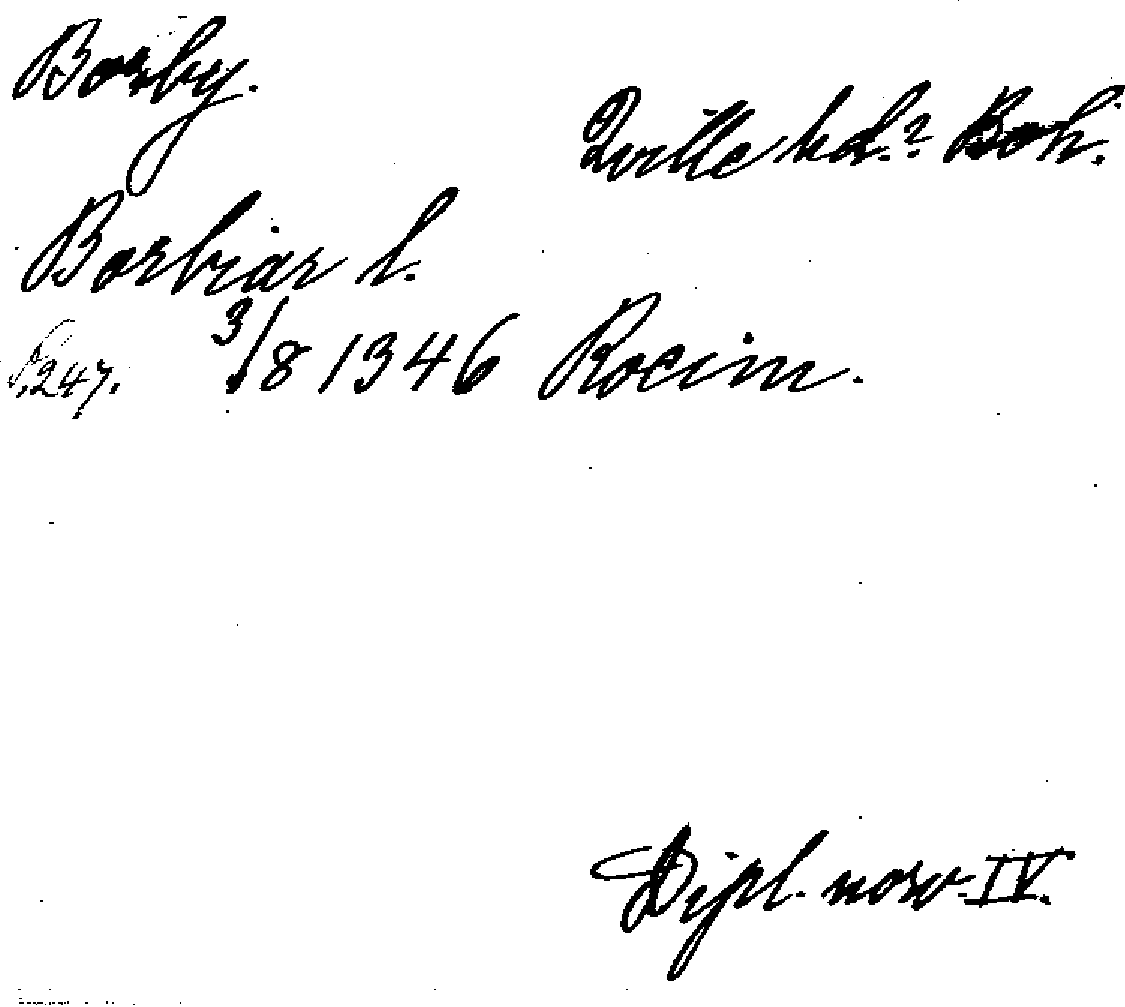 Borby.
Qville hd.? Boh.
Borbiar l.
S. 247. 3/8 1346 Rocim.
Dipl. norv. IV.